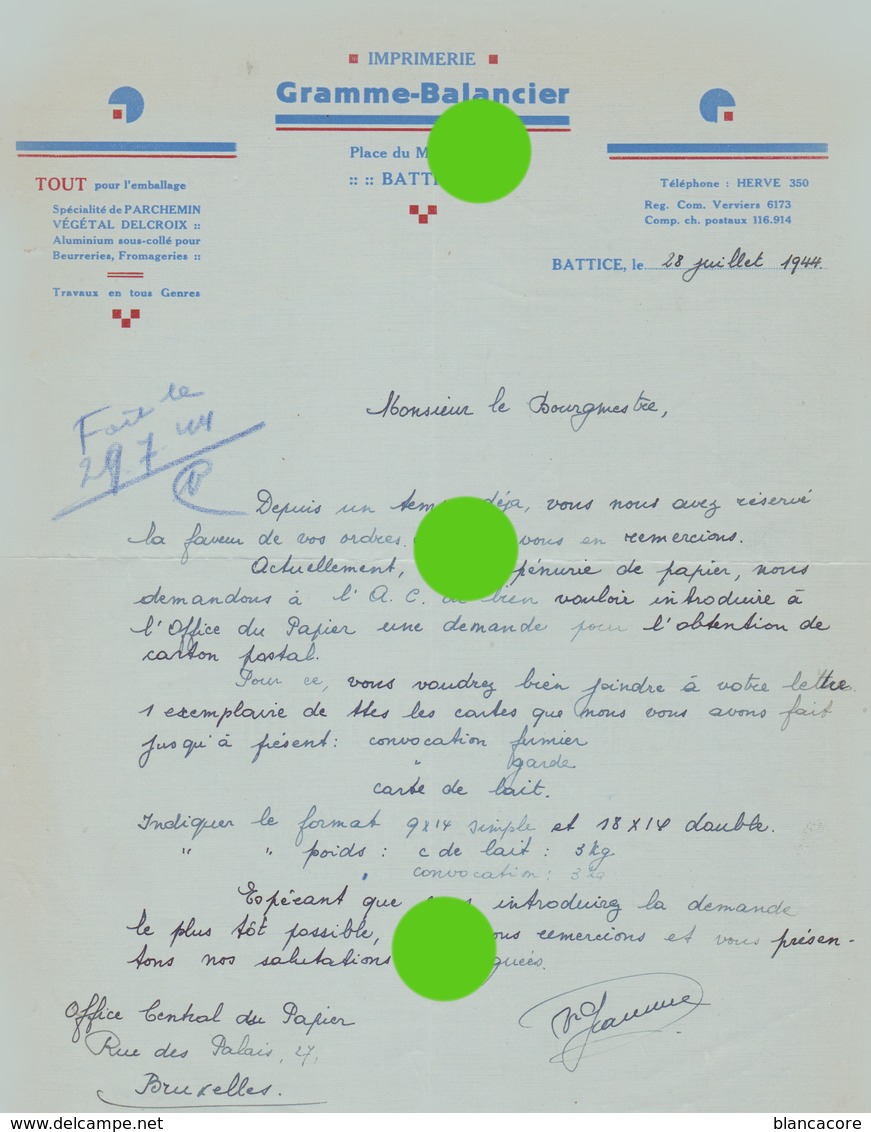 IMPRIMERIE
Gramme-Balancier
Place du
:: :: BATTI
TOUT pour l'emballage
Spécialité de PARCHEMIN
VÉGÉTAL DELCROIX ::
Aluminium sous-collé pour
Beurreries, Fromageries ::
Travaux en tous Genres
Téléphone : HERVE 350
Reg. Com. Verviers 6173
Comp. ch. postaux 116.914
BATTICE, le 28 juillet 1944.
Fait le
29.7.44
Monsieur le Bourgmestre,
Depuis un temps déja, vous nous avez réservé
la faveur de vos ordres, vous en remercions.
Actuellement, pénurie de papier, nous
demandons à l'A. C. de bien vouloir introduire à
l'Office du Papier une demande pour l'obtention de
carton postal.
Pour ce, vous voudrez bien joindre à votre lettre
1 exemplaire de ttes les cartes que nous vous avons fait
jusqu'à présent: convocation fumier
" garde
carte de lait.
Indiquer le format 9x14 simple et 18x14 double.
" " poids : c de lait : 3 kg
convocation : 3 kg
Espérant que introduirez la demande
le plus tôt possible, vous remercions et vous présen-
tons nos salutations
Office Central du Papier
Rue des Palais, 27,
Bruxelles.
blancacore